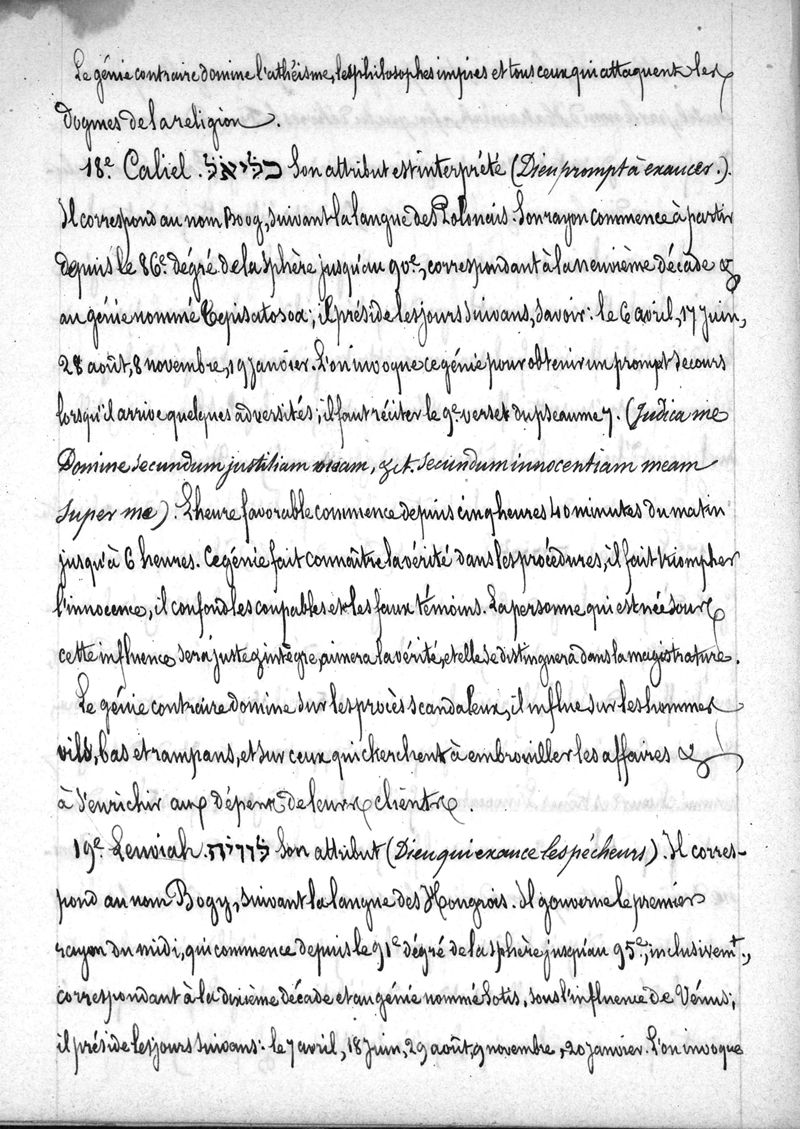 Le génie contraire domine l'athéisme, les philosophes impies et tous ceux qui attaquent les
dogmes de la religion.
18.e Caliel. כליאל Son attribut est interprété (Dieu prompt à exaucer.).
Il correspond au nom Boog, suivant la langue des Polonais. Son rayon commence à partir
depuis le 86.e dégré de la sphère jusqu'au 90e, correspondant à la neuvième décade &
au génie nommé Tepisatosoa; il préside les jours suivans, savoir: le 6 avril, 17 juin,
28 août, 8 novembre, 19 janvier. L'on invoque ce génie pour obtenir un prompt secours
lorsqu'il arrive quelques adversités; il faut réciter le 9.e verset du pseaume 7. (Judica me
Domine secundum justitiam meam, & t. secundum innocentiam meam
super me). L'heure favorable commence depuis cinq heures 40 minutes du matin
jusqu'à 6 heures. Ce génie fait connaître la vérité dans les procédures, il fait triompher
l'innocence, il confond les coupables et les faux témoins. La personne qui est née sous
cette influence sera juste & intègre, aimera la vérité, et elle se distinguera dans la magistrature.
Le génie contraire domine sur les procès scandaleux, il influe sur les hommes
vils, bas et rampans, et sur ceux qui cherchent à embrouiller les affaires &
à s'enrichir aux dépens de leurs clients.
19.e Leuviah. לוויה Son attribut (Dieu qui exauce les pécheurs). Il corres-
pond au nom Bogy, suivant la langue des Hongrois. Il gouverne le premier
rayon du midi, qui commence depuis le 91e dégré de la sphère jusqu'au 95e, inclusivemt.,
correspondant à la dixième décade et au génie nommé Sotis, sous l'influence de Vénus;
il préside les jours suivans: le 7 avril, 18 juin, 29 août, 9 novembre, 20 janvier. L'on invoque